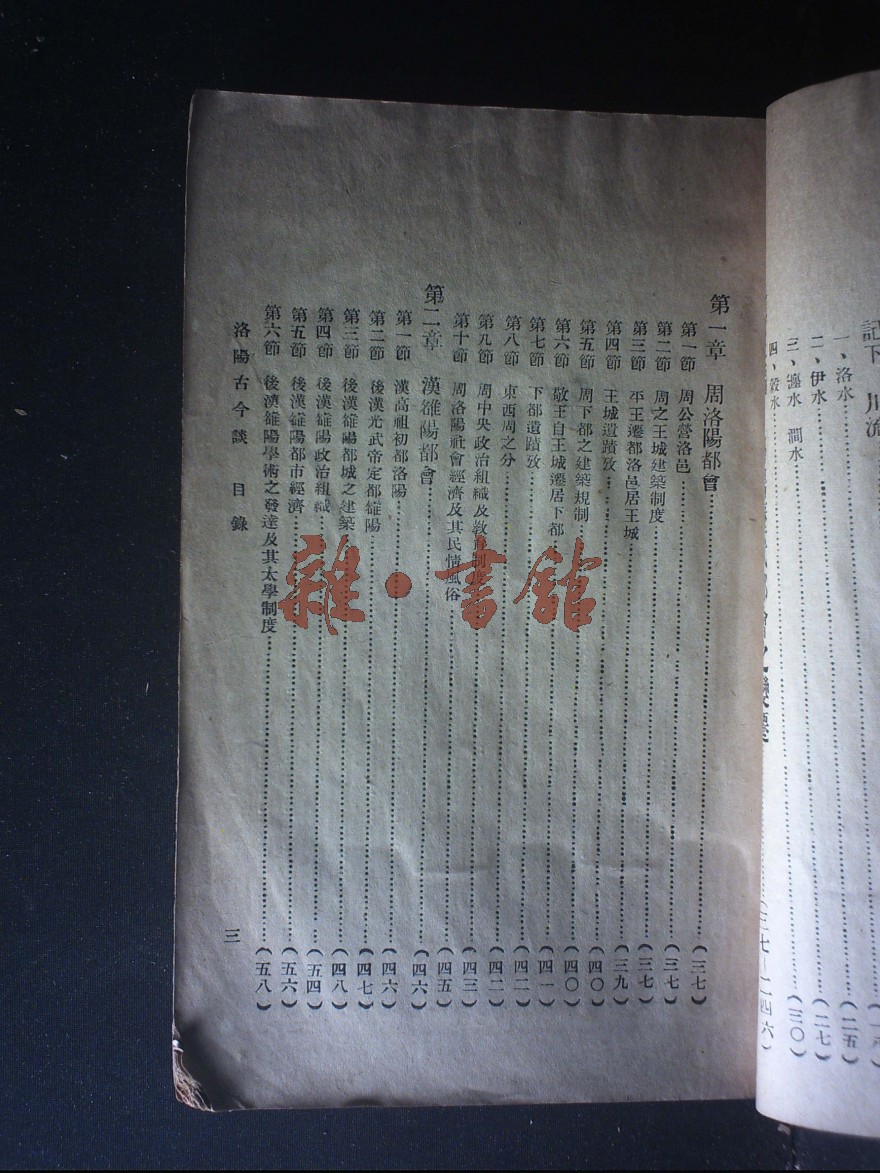 記下 川流
一、洛水……(二五)
二、伊水……(二七)
三、瀍水 澗水……(三〇)
四、穀水
會之變遷……(三七—二四六)
第一章 周洛陽都會……(三七)
第一節 周公營洛邑……(三七)
第二節 周之王城建築制度……(三七)
第三節 平王遷都洛邑居王城……(三九)
第四節 王城遺蹟攷……(四〇)
第五節 周下都之建築規制……(四〇)
第六節 敬王自王城遷居下都……(四一)
第七節 下都遺蹟攷……(四二)
第八節 東西周之分……(四二)
第九節 周中央政治組織及教育制度……(四三)
第十節 周洛陽社會經濟及其民情風俗……(四五)
第二章 漢雒陽都會……(四六)
第一節 漢高祖初都洛陽……(四六)
第二節 後漢光武帝定都雒陽……(四七)
第三節 後漢雒陽都城之建築……(四八)
第四節 後漢雒陽政治組織……(五四)
第五節 後漢雒陽都市經濟……(五六)
第六節 後漢雒陽學術之發達及其太學制度……(五八)
洛陽古今談 目錄 三
雜·書館